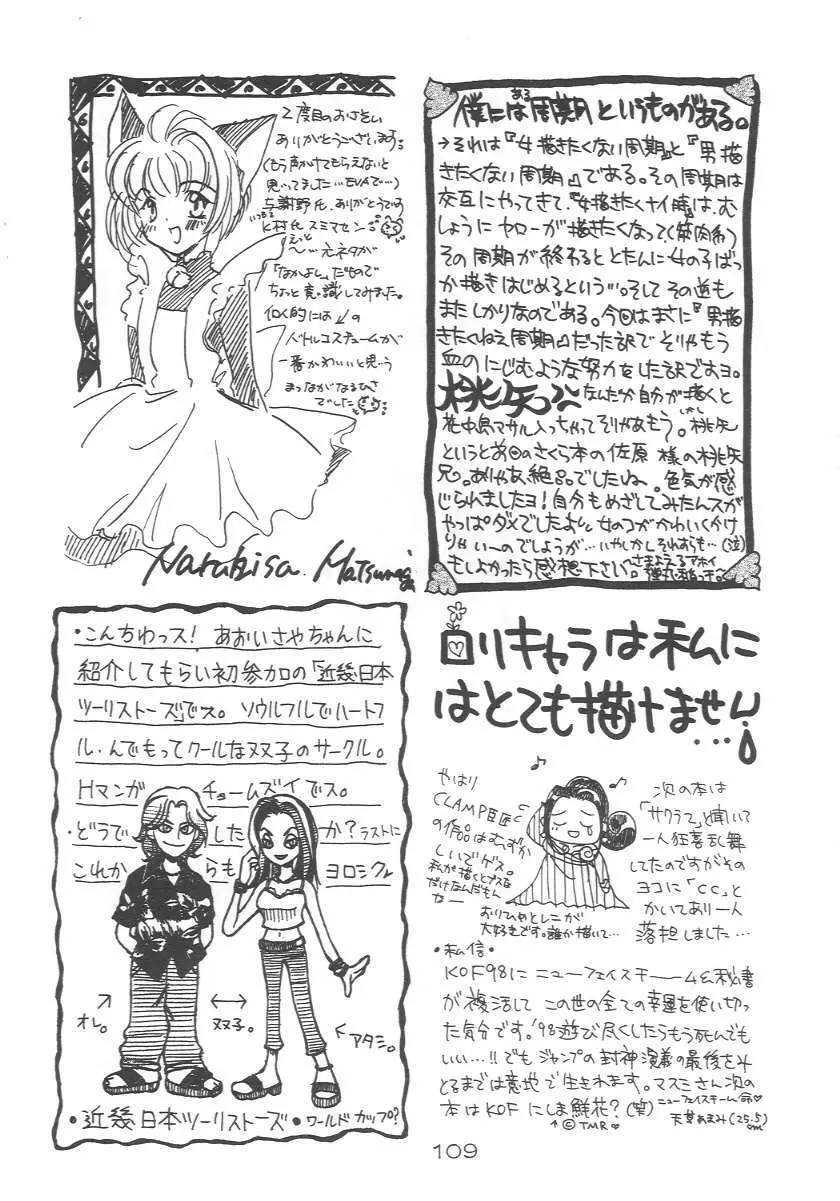 2度目のおさそい
ありがとうございます。
(もう声かけてもらえないと
思ってました…EVAで…)
与謝野氏、ありがとうです
いつも
K村氏 スミマセン
えっと
〜…元ネタが
「なかよし」だもので
ちょっと意識してみました。
個人的には↙の
バトルコスチュームが
一番かわいいと思う
まつながなるひさ
でした
Naruhisa. Matsunaga
僕には周期というものがある。
ある
→それは『女描きたくない周期』と『男描
きたくない周期』である。その周期は
交互にやってきて、『女描きたくナイ時』は、む
しょうにヤローが描きたくなって(筋肉希)
その周期が終わるととたんに女の子ばっ
か描きはじめるという…。そしてその逆も
またしかりなのである。今回はまさに『男描
きたくねえ周期』だった訳でそりゃもう
血のにじむような努力をした訳ですヨ。
桃矢っ なんだか自分が描くと
花中島マサル入っちゃってそりゃあもう。しかし桃矢
というと前回のさくら本の佐原様の桃矢
兄。ありゃあ、絶品でしたね。色気が感
じられましたヨ!自分もめざしてみたんスが
やっぱダメでしたよ。女のコがかわいくかけ
りゃい〜のでしょうが…いやしかしそれすらも…(泣)
もしよかったら感想下さい。さまよえるアホイ
・こんちわっス! あおいさやちゃんに
紹介してもらい初参加の「近畿日本
ツーリストーズ」でス。 ソウルフルでハートフ
ル・んでもってクールな双子のサークル。
Hマンガ チョームズイでス。
・どうで した か?ラストに
これか らも ヨロシク
↗
オレ。
↔
双子。
↖アタシ。
・近畿日本ツーリストーズ・ワールドカップ?
ロリキャラは私に
はとても描けません
…
やはり
CLAMP巨匠
の作品はむずか
しいでゲス。
私が描くとブスな
だけなんだもん
なー
おりひめとレニが
大好きです。誰か描いて…
次の本は
「サクラて」と聞いて
一人狂喜乱舞
してたのですがその
ヨコに「CC」と
かいてあり一人
落胆しました…
・私信・
KOF98にニューフェイスチーム&秘書
が復活して この世の全ての幸運を使い切っ
た気分です。'98遊び尽くしたらもう死んでも
いい…!!でもジャンプの封神演義の最後をみ
とるまでは意地で生きれます。マスミさん次の
本はKOFにしま鮮花?(笑)ニューフェイスチーム命♡
↑©TMR♡ 天草あまみ(25.5)
cm
109